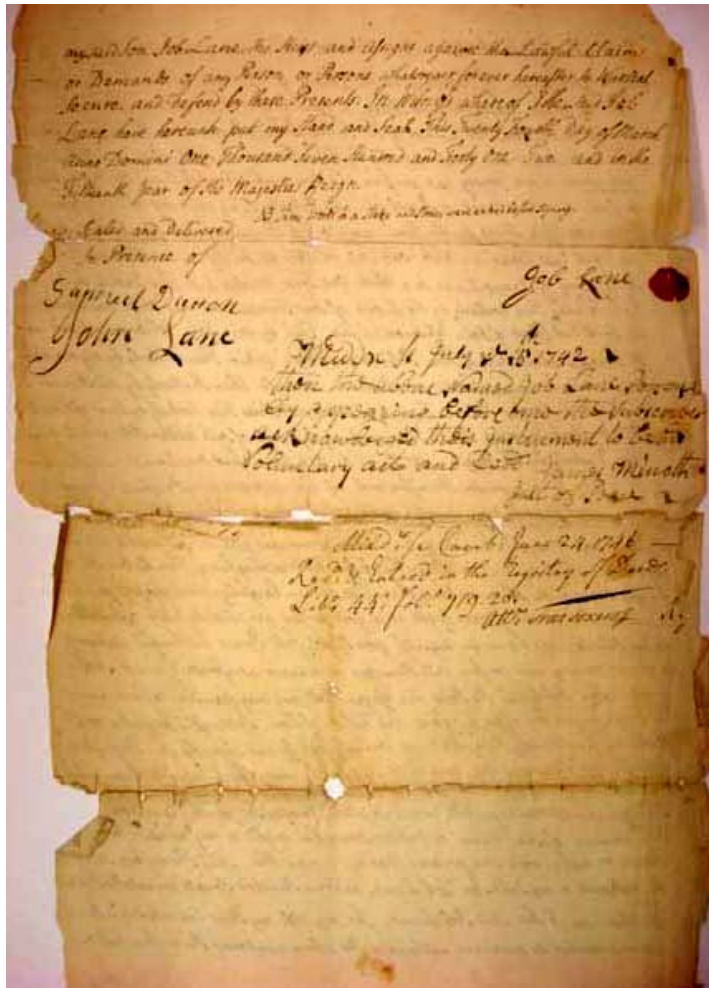 my said Son Job Lane, his Heirs and assigns against the Lawful Claims
or Demands of any Person or Persons whatsoever forever hereafter to Warrant
Secure and Defend by these Presents. In Witness whereof I the said Job
Lane have hereunto put my Hand and Seal This Twenty fourth Day of March
Anno Domini One Thousand Seven Hundred and Forty One Two and in the
year of His Majesties Reign
before signing
Sealed and Delivered
In Presence of
Job Lane
Samuel Danon
John Lane
July 1742
Then the above Named Job Lane Person
ally appearing before me the Subscriber
acknowledged this Instrument to be his
Voluntary act and Deed James Minott
Just of Peace
Midx ss Camb: June 24. 1746
Recd & Entered in the Registry of Deeds
Libo 44: folo 719. 20:
Reg